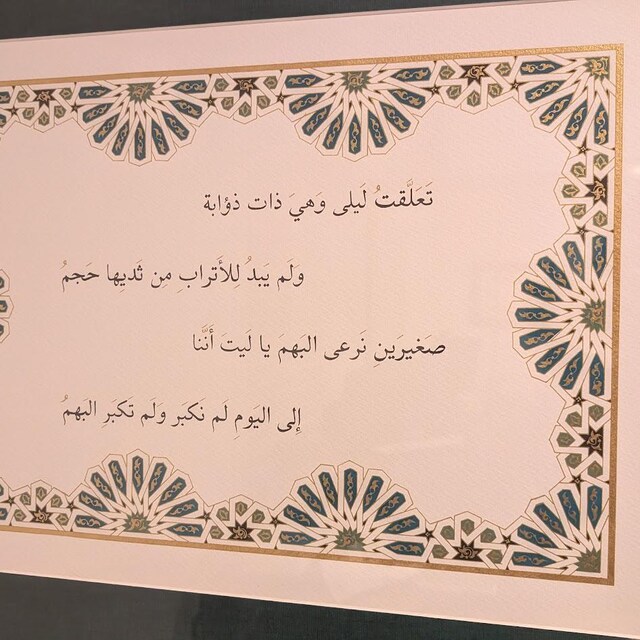 تَعَلَّقتُ لَيلى وَهيَ ذات ذؤابة
وَلَم يَبدُ لِلأَترابِ مِن ثَديِها حَجمُ
صَغيرَينِ نَرعى البَهمَ يا لَيتَ أَنَّنا
إِلى اليَومِ لَم نَكبَر وَلَم تَكبَرِ البَهمُ